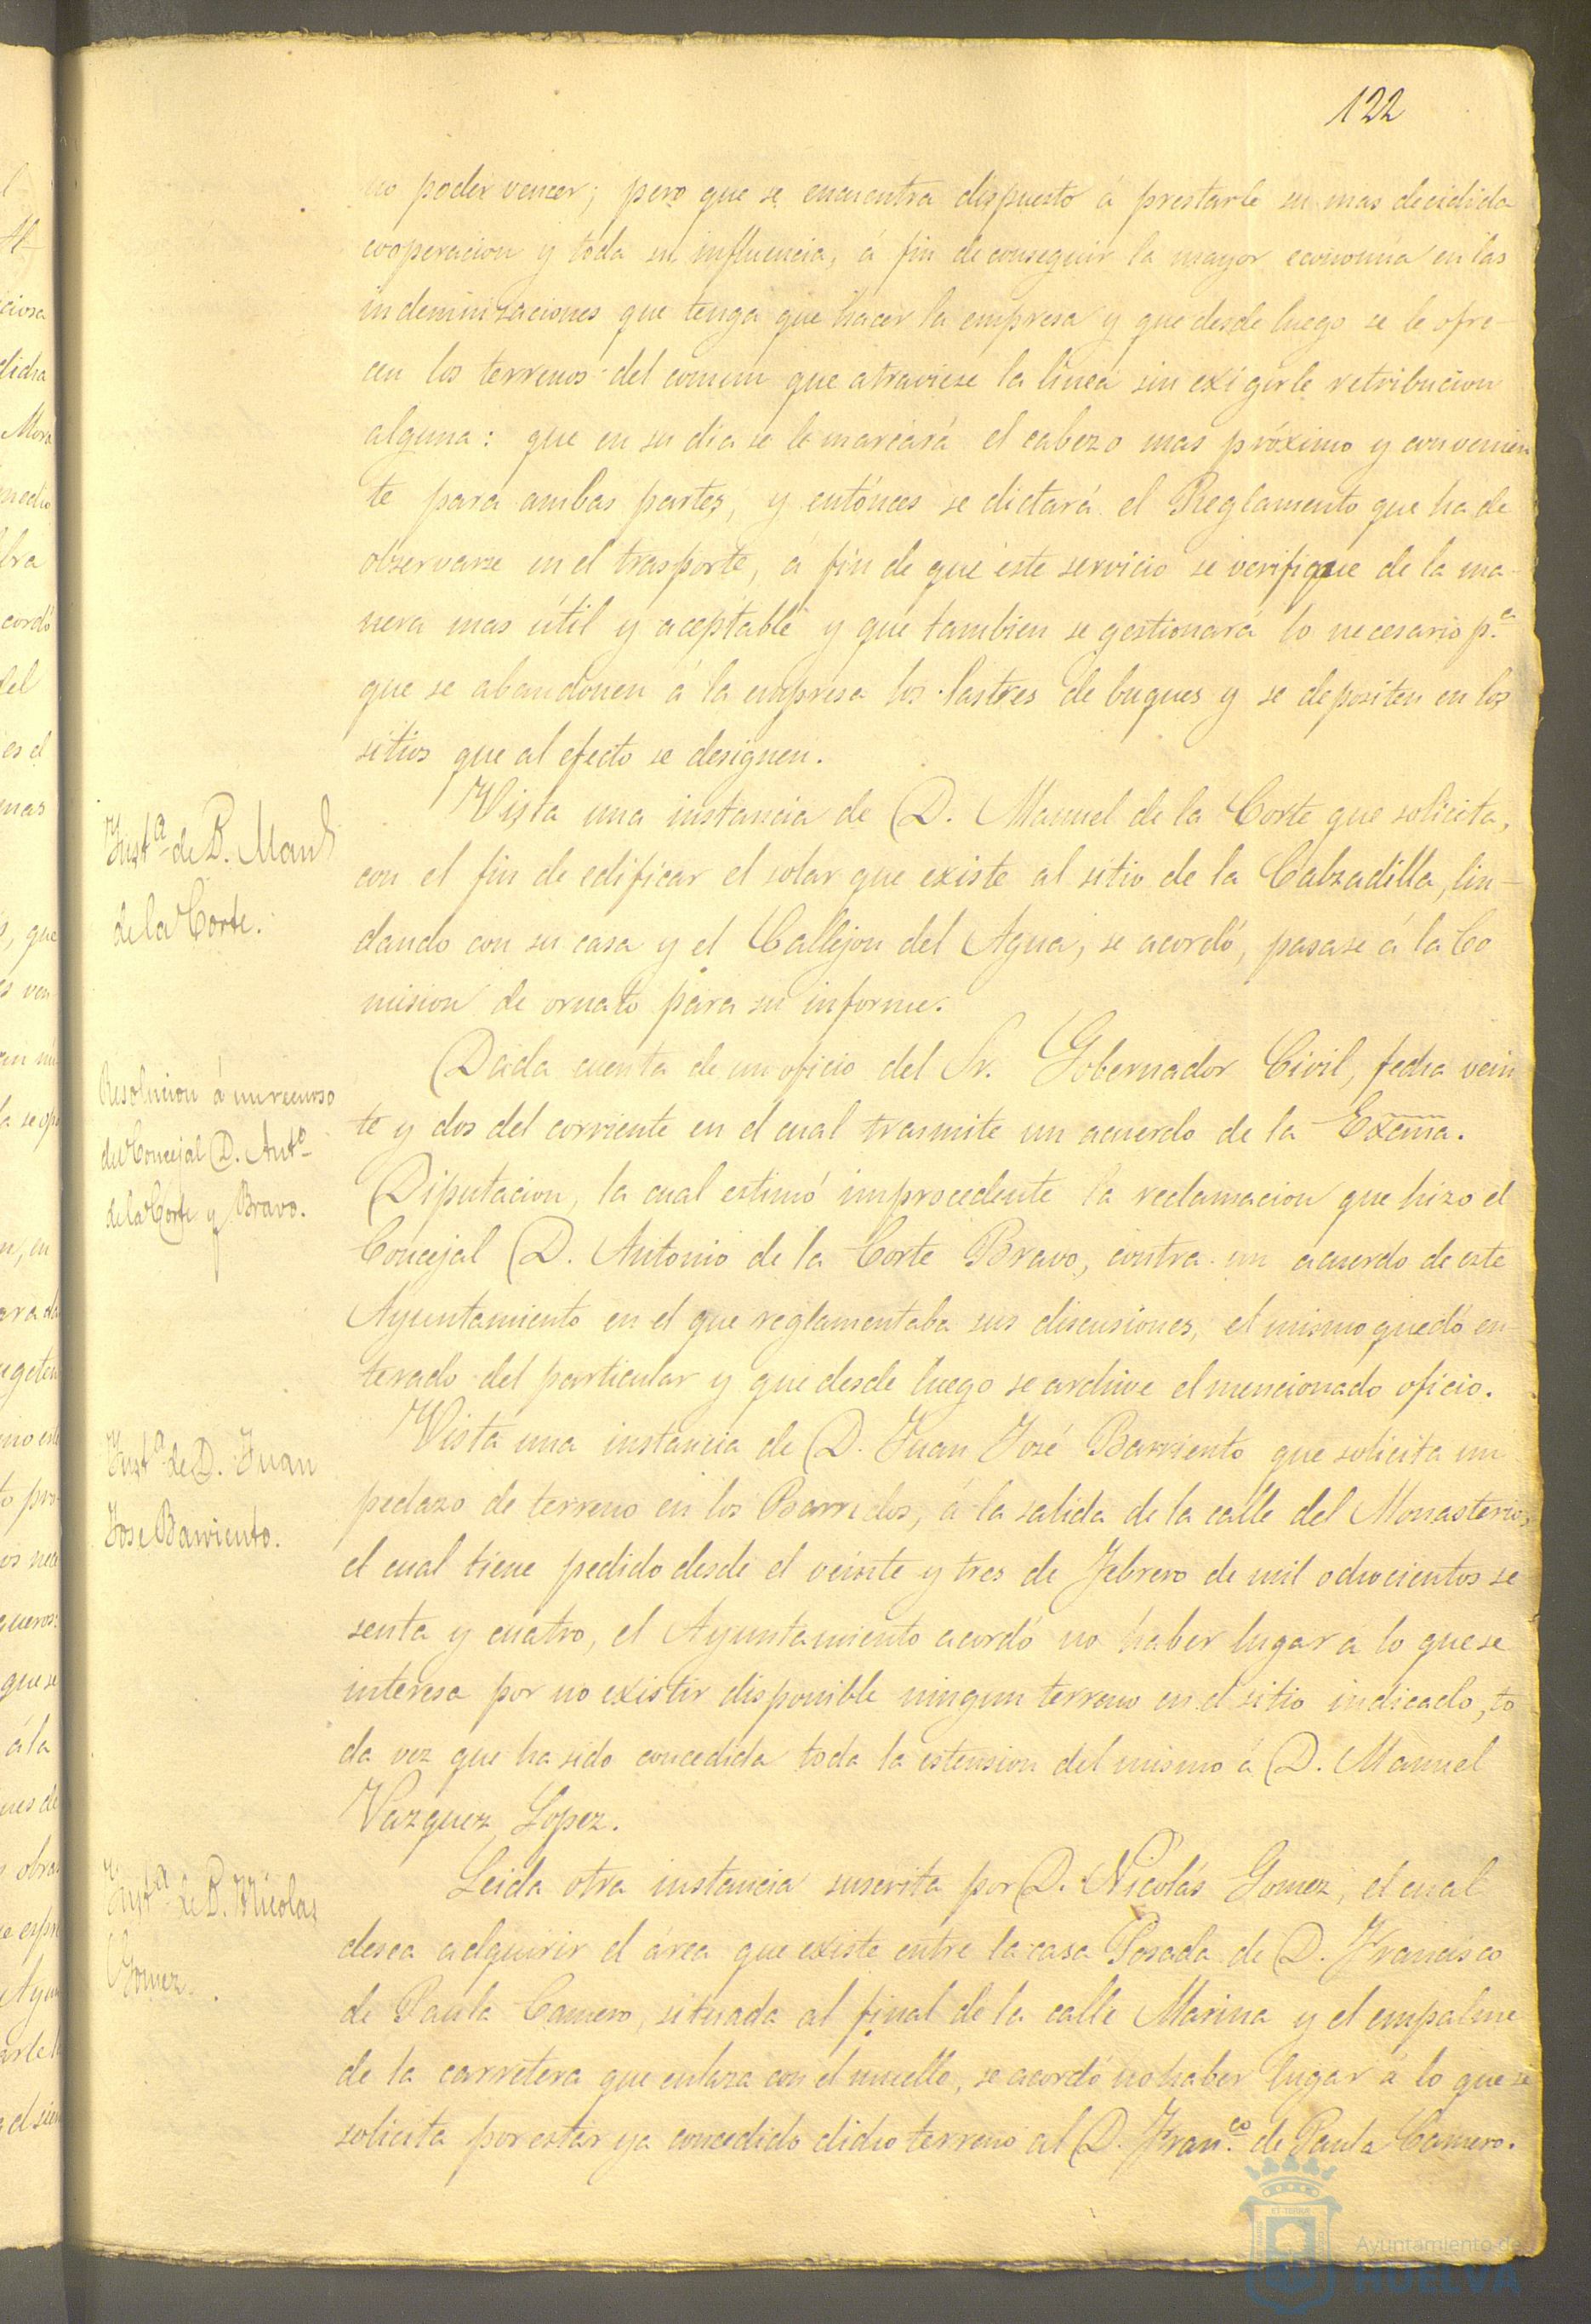 122
no poder vencer; pero que se encuentra dispuesto á prestarle su mas decidida
cooperacion y toda su influencia, á fin de conseguir la mayor economía en las
indemnizaciones que tenga que hacer la empresa y que desde luego se le ofre-
cen los terrenos del comun que atraviese la línea sin exigirle retribucion
alguna: que en su dia se le marcará el cabezo mas próximo y convenien
te para ambas partes, y entónces se dictará el Reglamento que ha de
observarse en el trasporte, á fin de que este servicio se verifique de la ma-
nera mas útil y aceptable y que tambien se gestionará lo necesario p.ª
que se abandonen á la empresa los lastres de buques y se depositen en los
sitios que al efecto se designen.
Inst.ª de D. Man.l
de la Corte.
Vista una instancia de D. Manuel de la Corte que solicita,
con el fin de edificar el solar que existe al sitio de la Calzadilla, lin-
dando con su casa y el Callejon del Agua, se acordó, pasase á la Co
mision de ornato para su informe.
Resolucion á un recurso
del Concejal D. Ant.º
de la Corte y Bravo.
Dada cuenta de un oficio del Sr. Gobernador Civil, fecha vein
te y dos del corriente en el cual trasmite un acuerdo de la Excma.
Diputacion, la cual estimó improcedente la reclamacion que hizo el
Concejal D. Antonio de la Corte Bravo, contra un acuerdo de este
Ayuntamiento en el que reglamentaba sus discusiones, el mismo quedó en-
terado del particular y que desde luego se archive el mencionado oficio.
Inst.ª de D. Juan
José Barriento.
Vista una instancia de D. Juan José Barriento que solicita un
pedazo de terreno en los Barridos, á la salida de la calle del Monasterio,
el cual tiene pedido desde el veinte y tres de Febrero de mil ochocientos se
senta y cuatro, el Ayuntamiento acordó no haber lugar á lo que se
interesa por no existir disponible ningun terreno en el sitio indicado, to
da vez que ha sido concedida toda la estension del mismo á D. Manuel
Vazquez Lopez.
Inst.ª de D. Nicolas
Gomez.
Leida otra instancia suscrita por D. Nicolás Gomez, el cual
desea adquirir el área que existe entre la casa Posada de D. Francisco
de Paula Camero, situada al final de la calle Marina y el empalme
de la carretera que enlaza con el muelle, se acordó no haber lugar á lo que se
solicita por estar ya concedido dicho terreno al D. Fran.co de Paula Camero.
Ayuntamiento de
HUELVA